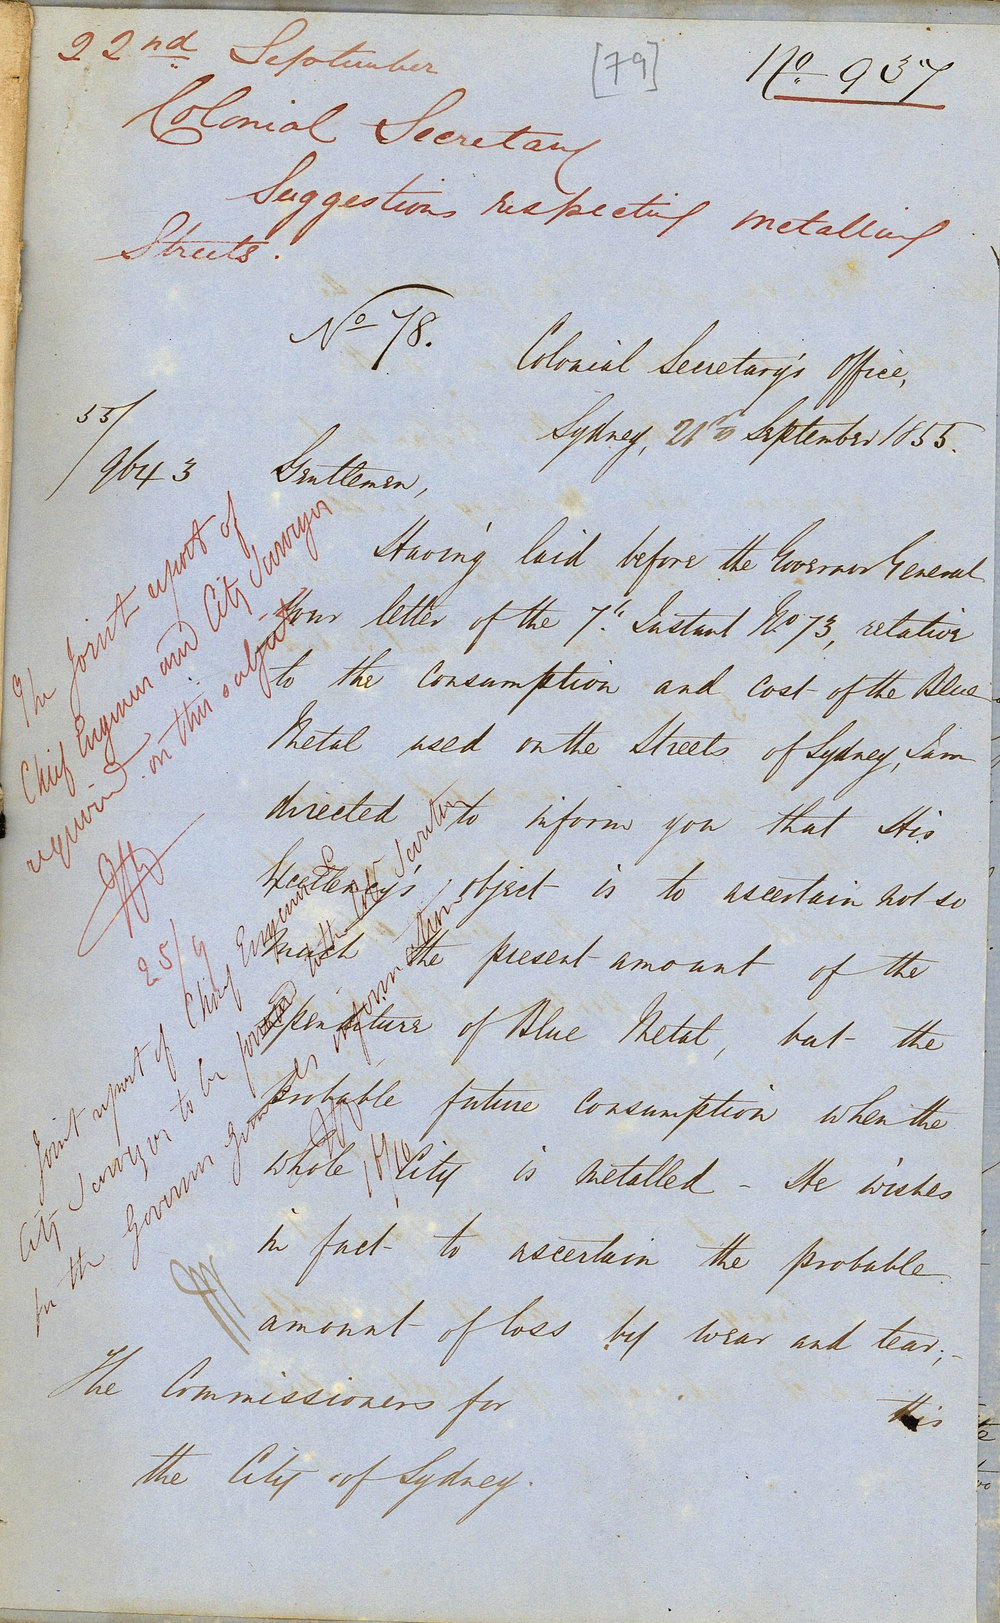 22nd September
[79]
No 937
Colonial Secretary
Suggestions respecting metalling
Streets.
No 78.
Colonial Secretary's Office,
Sydney, 21st September 1855.
55/
9643
Gentlemen,
Having laid before the Governor General
your letter of the 7th Instant No 73, relative
to the consumption and cost of the Blue
Metal used on the Streets of Sydney, I am
directed to inform you that His
Excellency's object is to ascertain not so
much the present amount of the
expenditure of Blue Metal, but the
probable future consumption when the
whole City is metalled - He wishes
in fact to ascertain the probable
amount of loss by wear and tear;-
this
The Commissioners for
the City of Sydney.
The Joint report of
Chief Engineer and City Surveyor
required on this subject
25/9
Joint report of Chief Engineer &
City Surveyor to be forwarded with Cover Secretary
for the Governor Generals information
18/10